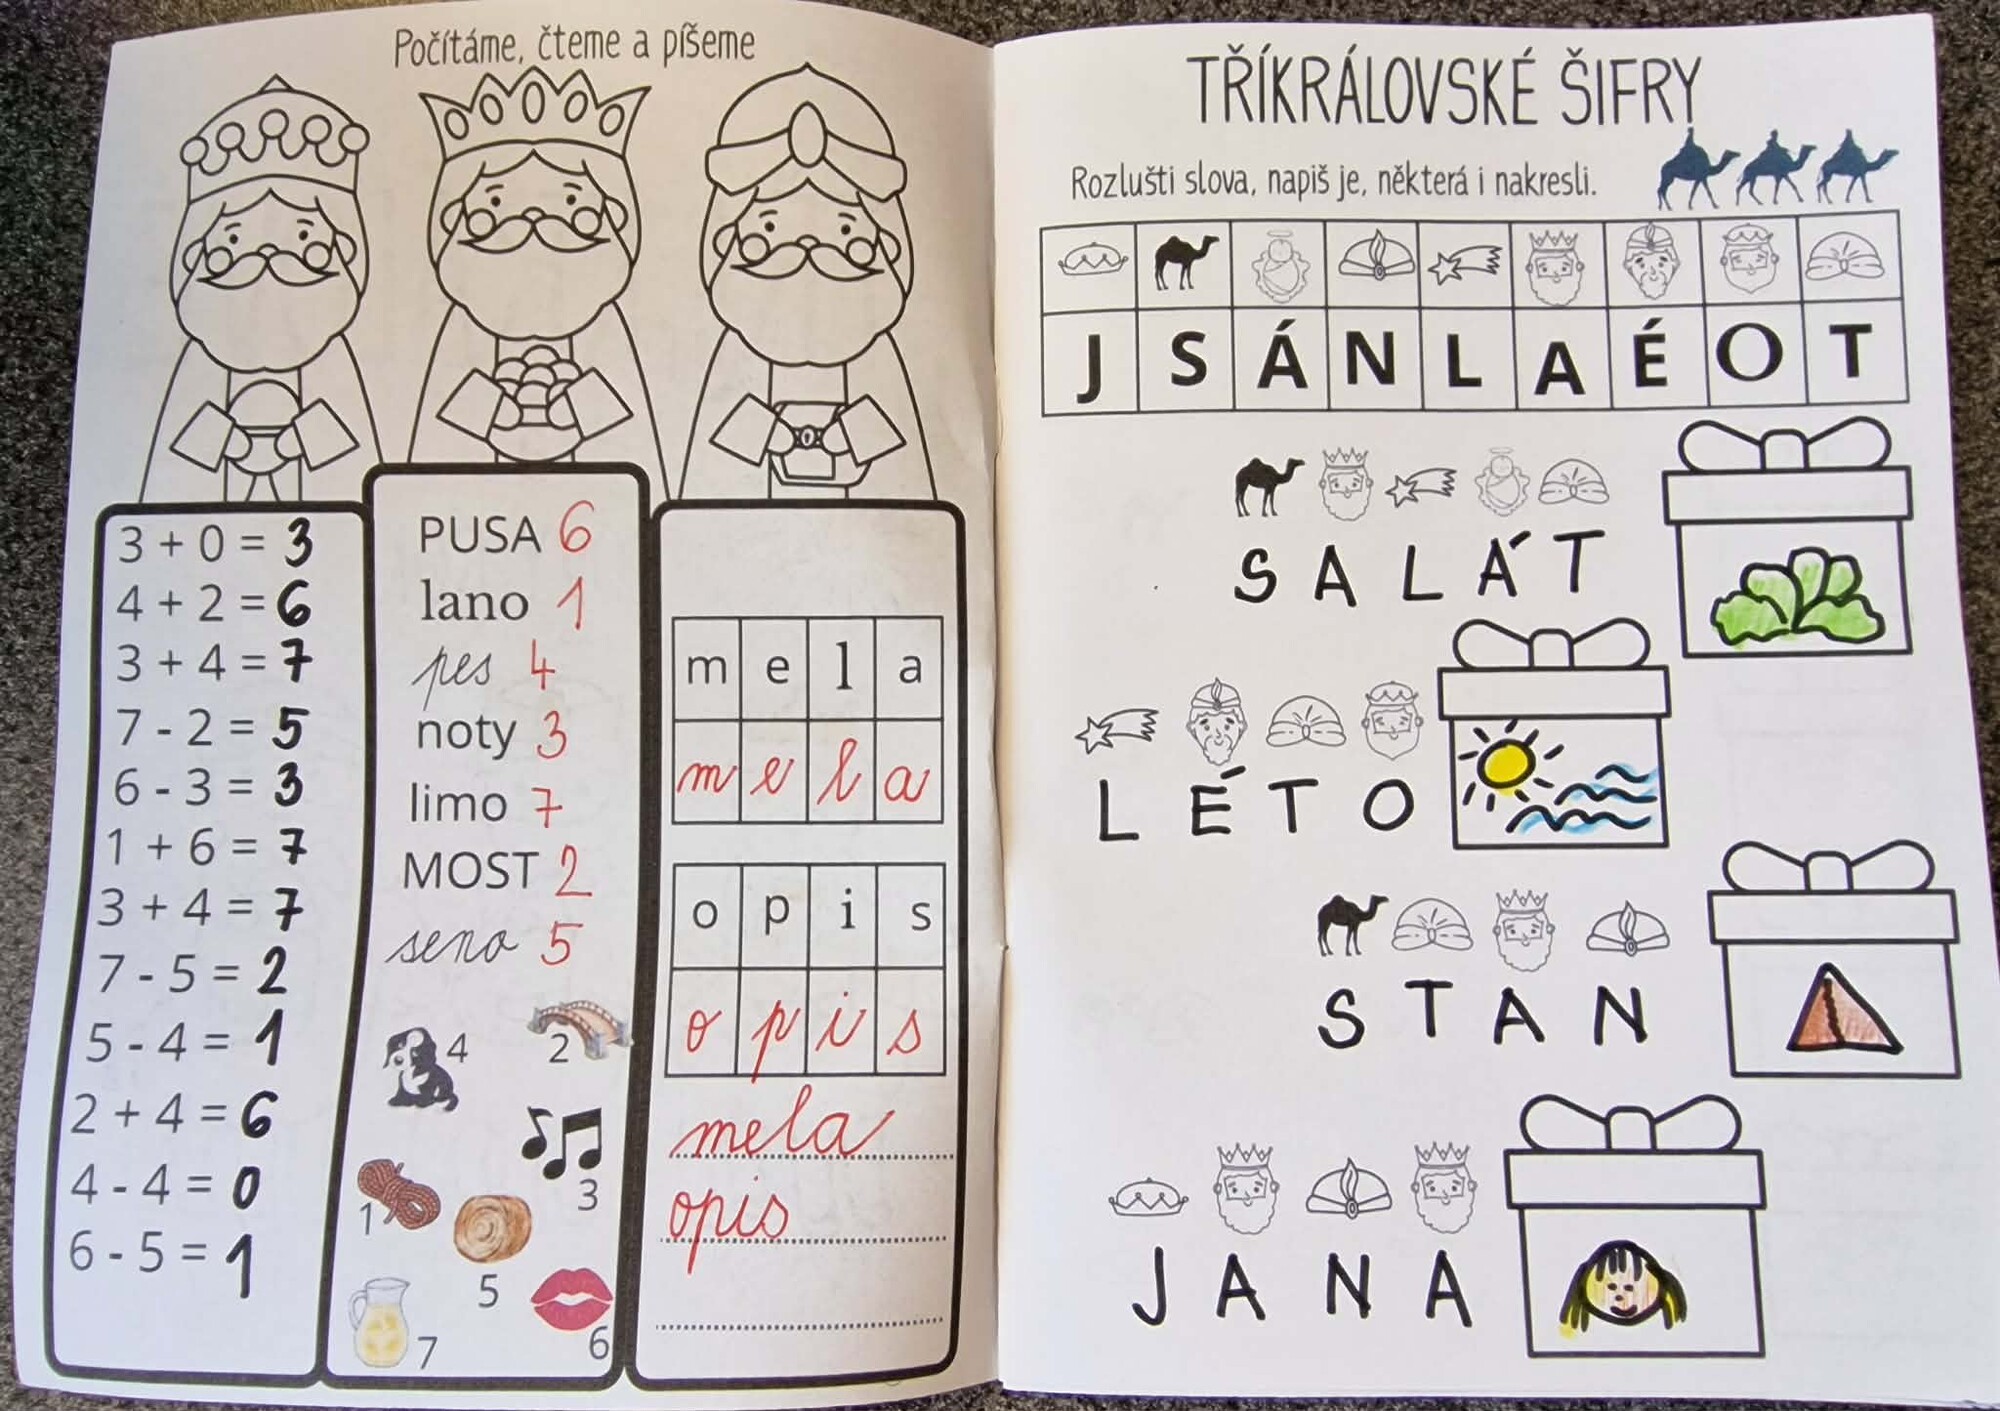 Počítáme, čteme a píšeme
3 + 0 = 3
4 + 2 = 6
3 + 4 = 7
7 - 2 = 5
6 - 3 = 3
1 + 6 = 7
3 + 4 = 7
7 - 5 = 2
5 - 4 = 1
2 + 4 = 6
4 - 4 = 0
6 - 5 = 1
PUSA 6
lano 1
pes 4
noty 3
limo 7
MOST 2
seno 5
4
2
3
1
5
6
7
m e l a
m e l a
o p i s
o p i s
mela
opis
TŘÍKRÁLOVSKÉ ŠIFRY
Rozlušti slova, napiš je, některá i nakresli.
J S Á N L A É O T
S A L Á T
L É T O
S T A N
J A N A